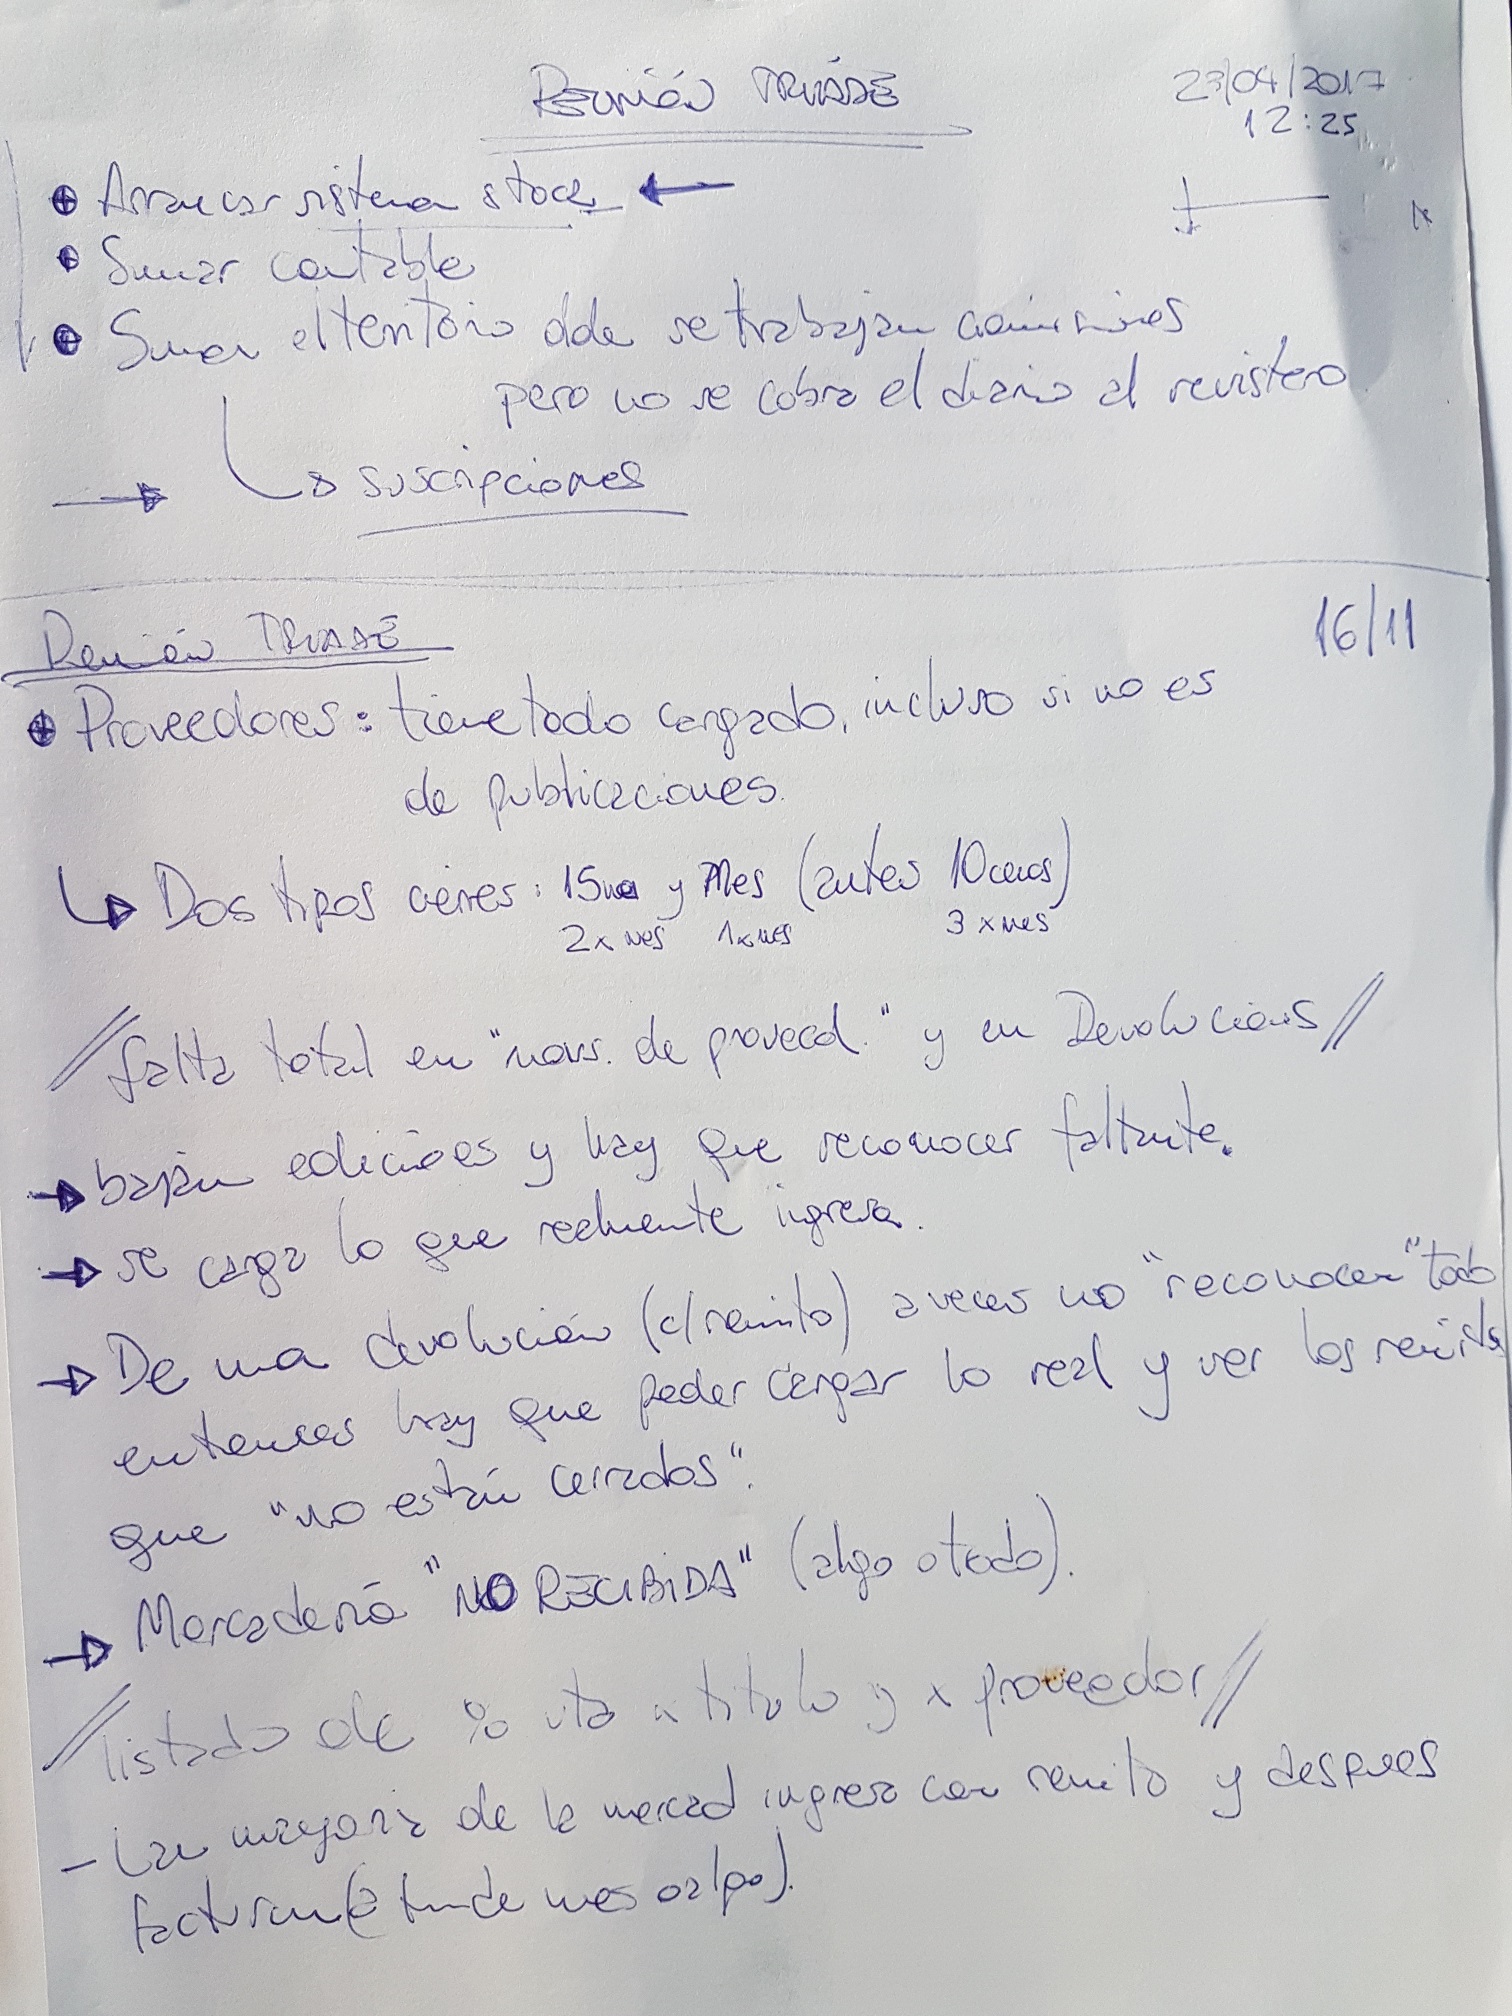 Reunión TRIADE
23/04/2017
12:25
Arrancar sistema stock
Sumar contable
Sumar el territorio dde se trabajan comisiones
pero no se cobra el diario al revistero
suscripciones
Reunión TRIADE
16/11
Proveedores: tiene todo cargado, incluso si no es
de publicaciones.
Dos tipos cierres: 15na y Mes (antes 10cenas)
2x mes 1x mes 3 x mes
// falta total en "movs. de proveed." y en Devoluciones //
bajan ediciones y hay que reconocer faltante.
se carga lo que realmente ingresa.
De una devolución (c/remito) a veces no "reconocen" todo
entonces hay que poder cargar lo real y ver los remitos
que "no están cerrados".
Mercadería "NO RECIBIDA" (algo o todo).
// listado de % vta x título y x proveedor //
- La mayoría de la mercad ingresa con remito y después
facturan (a fin de mes o algo).